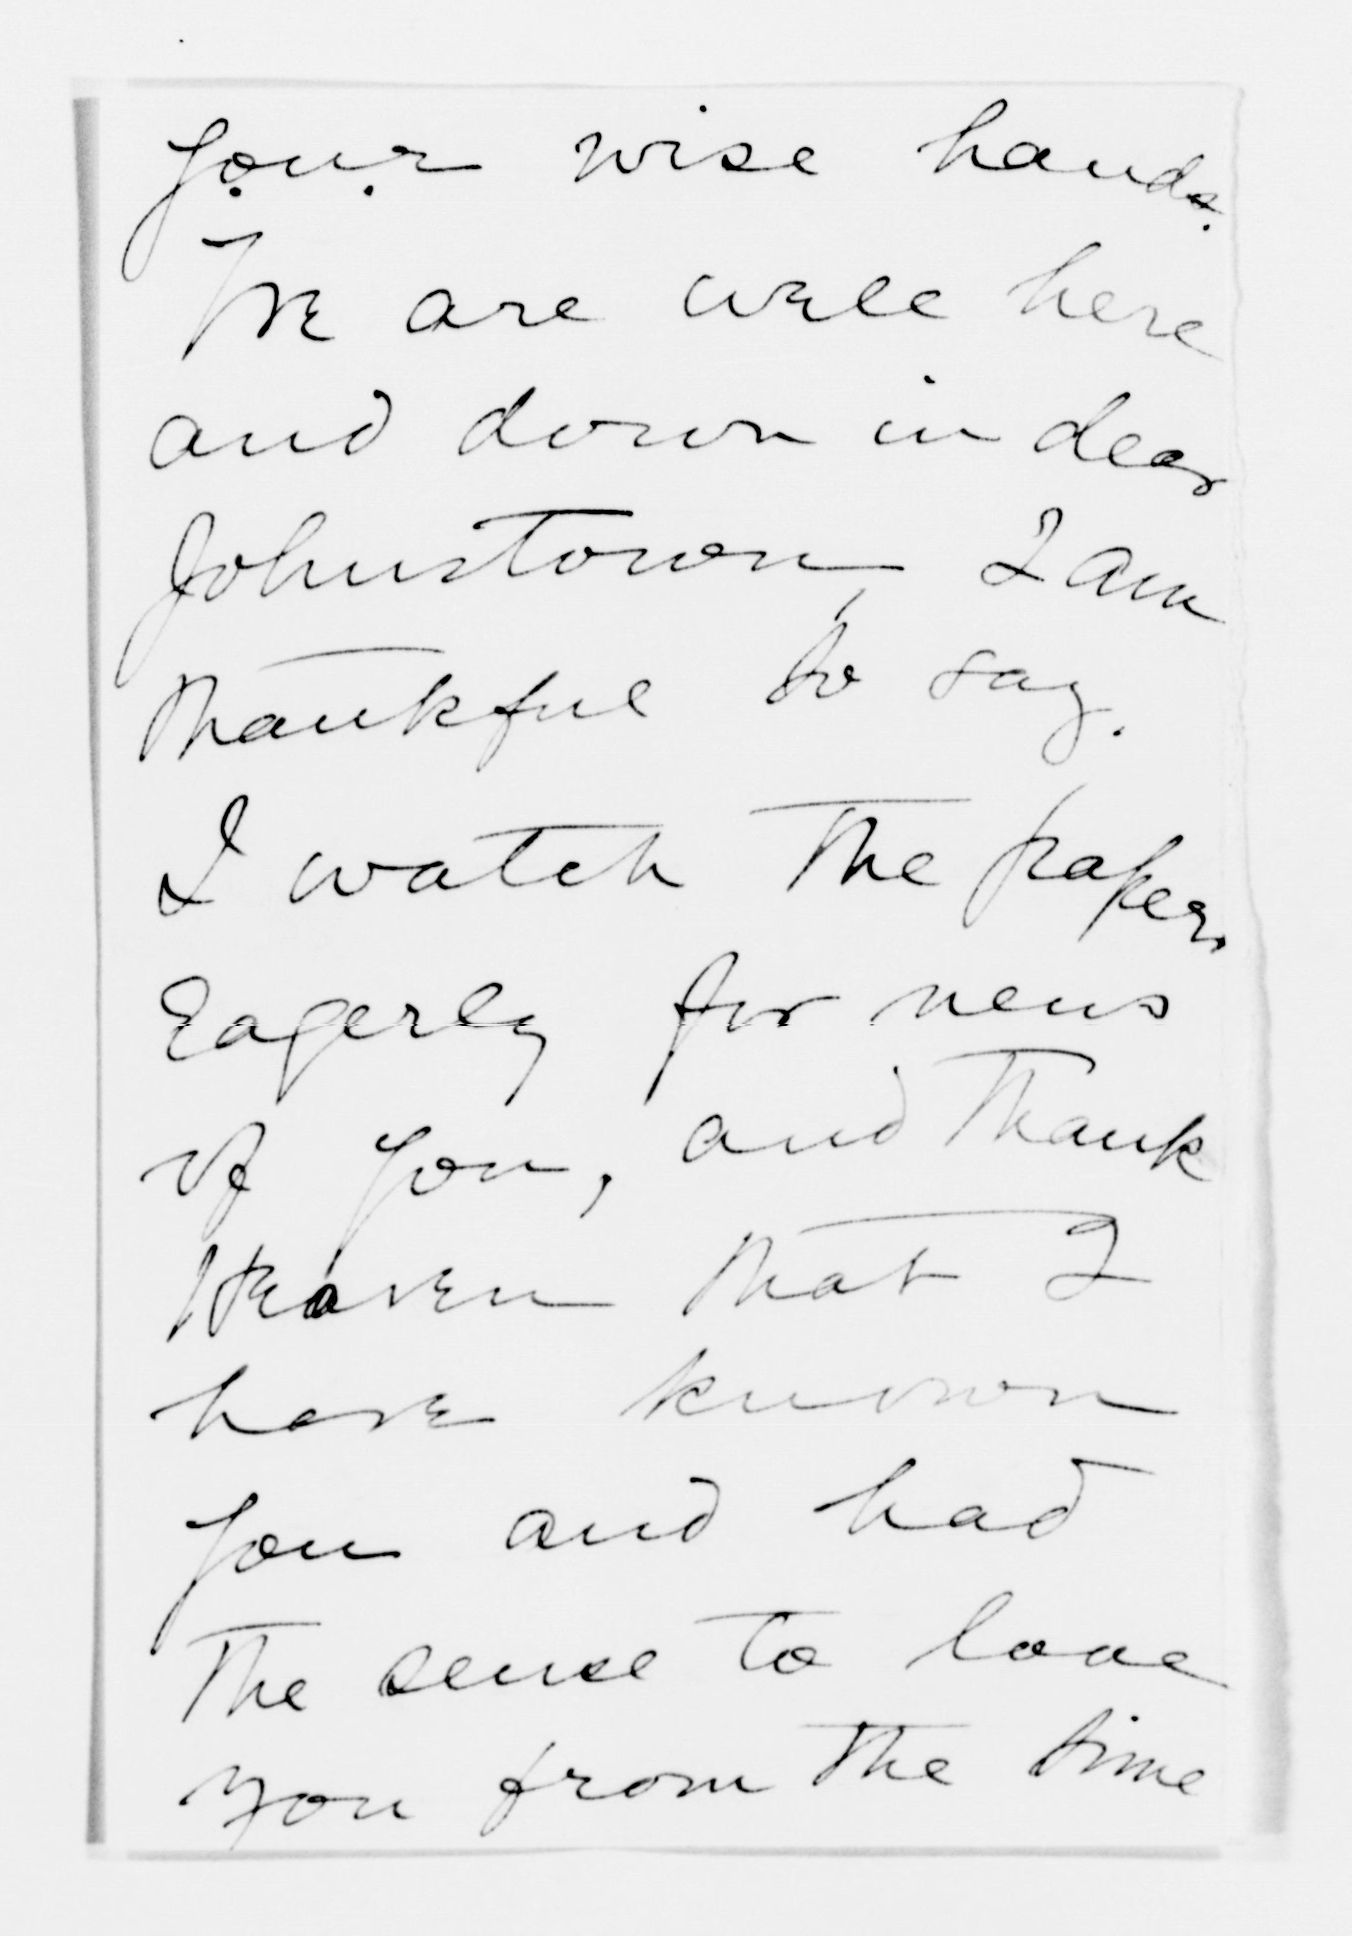 your wise hands.
We are well here
and down in dear
Johnstown, I am
thankful to say.
I watch the papers
Eagerly for news
of you, and thank
Heaven that I
have known
you and had
the sense to love
you from the time